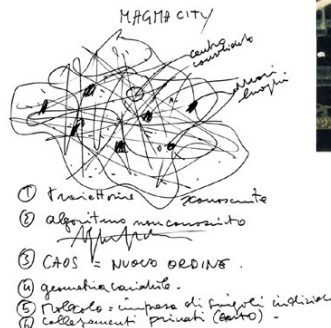 MAGMA CITY
centro
consolidato
nuovi
luoghi
① traiettorie sconosciute
② algoritmo non conosciuto
③ CAOS = NUOVO ORDINE.
④ geometria variabile.
⑤ = impresa di singoli
⑥ collegamenti privati (auto) -